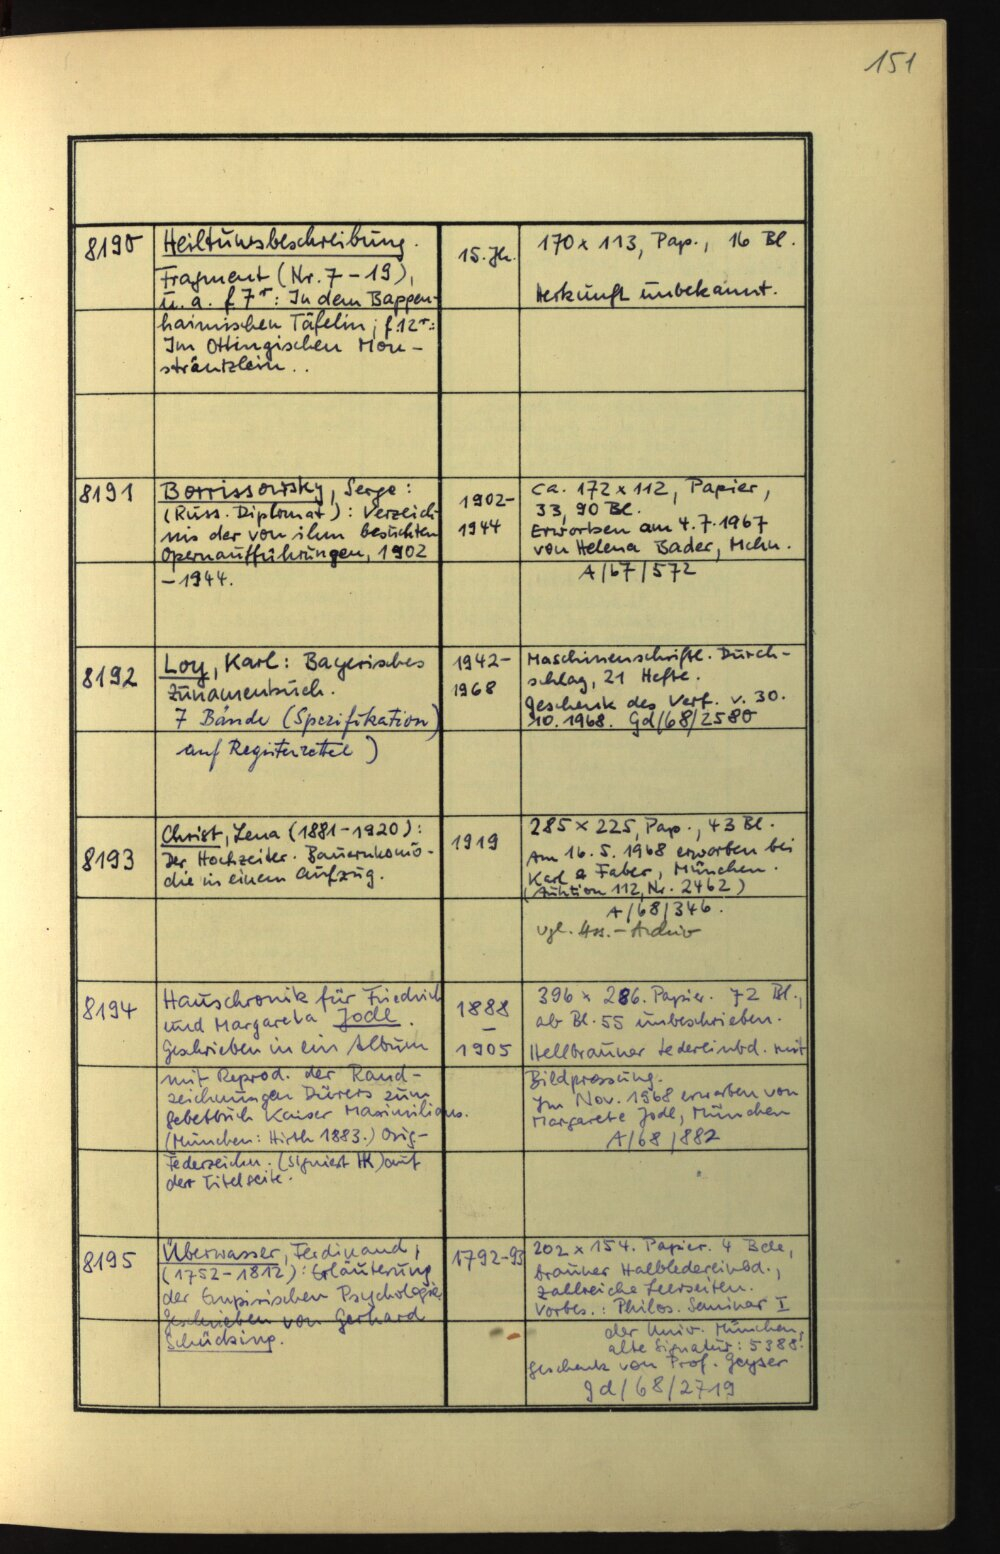 151
8190
Heiltumsbeschreibung.
Fragment (Nr. 7 – 19),
u. a. f 7r: In dem Bappen-
haimischen Täfelin; f. 12r:
Im Ottingischen Mon-
sträntzlein..
15. Jh.
170 x 113, Pap., 16 Bl.
Herkunft unbekannt.
8191
Borrissowsky, Serge:
(Russ. Diplomat): Verzeich-
nis der von ihm besuchten
Opernaufführungen, 1902
– 1944.
1902-
1944
ca. 172 x 112, Papier,
33, 90 Bl.
Erworben am 4.7.1967
von Helena Bader, Mchn.
A/67/572
8192
Loy, Karl: Bayerisches
Zunamenbuch.
7 Bände (Spezifikation)
auf Registerzettel)
1942-
1968
Maschinenschriftl. Durch-
schlag, 21 Hefte.
Geschenk des Verf. v. 30.
10. 1968. Gd/68/2580
8193
Christ, Lena (1881-1920):
Der Hochzeiter. Bauernkomö-
die in einem Aufzug.
1919
285 x 225, Pap., 43 Bl.
Am 16. 5. 1968 erworben bei
Karl & Faber, München.
(Auktion 112, Nr. 2462)
A/68/346.
vgl. Hss.-Archiv
8194
Hauschronik für Friedrich
und Margareta Jodl.
Geschrieben in ein Album
mit Reprod. der Rand-
zeichnungen Dürers zum
Gebetbuch Kaiser Maximilians.
(München: Hirth 1883.) Orig-
Federzeichn. (signiert HK) auf
der Titelseite.
1888
–
1905
396 x 286. Papier. 72 Bl.,
ab Bl. 55 unbeschrieben.
Hellbrauner Ledereinbd. mit
Bildpressung.
Im Nov. 1968 erworben von
Margarete Jodl, München
A/68/882
8195
Überwasser, Ferdinand,
(1752-1812): Erläuterung
der Empirischen Psychologie.
Geschrieben von Gerhard
Schücking.
1792-93
202 x 154. Papier. 4 Bde,
brauner Halbledereinbd.,
zahlreiche Leerseiten.
Vorbes.: Philos. Seminar I
der Univ. München,
alte Signatur: 5388.
Geschenk von Prof. Geyser
Gd/68/2719